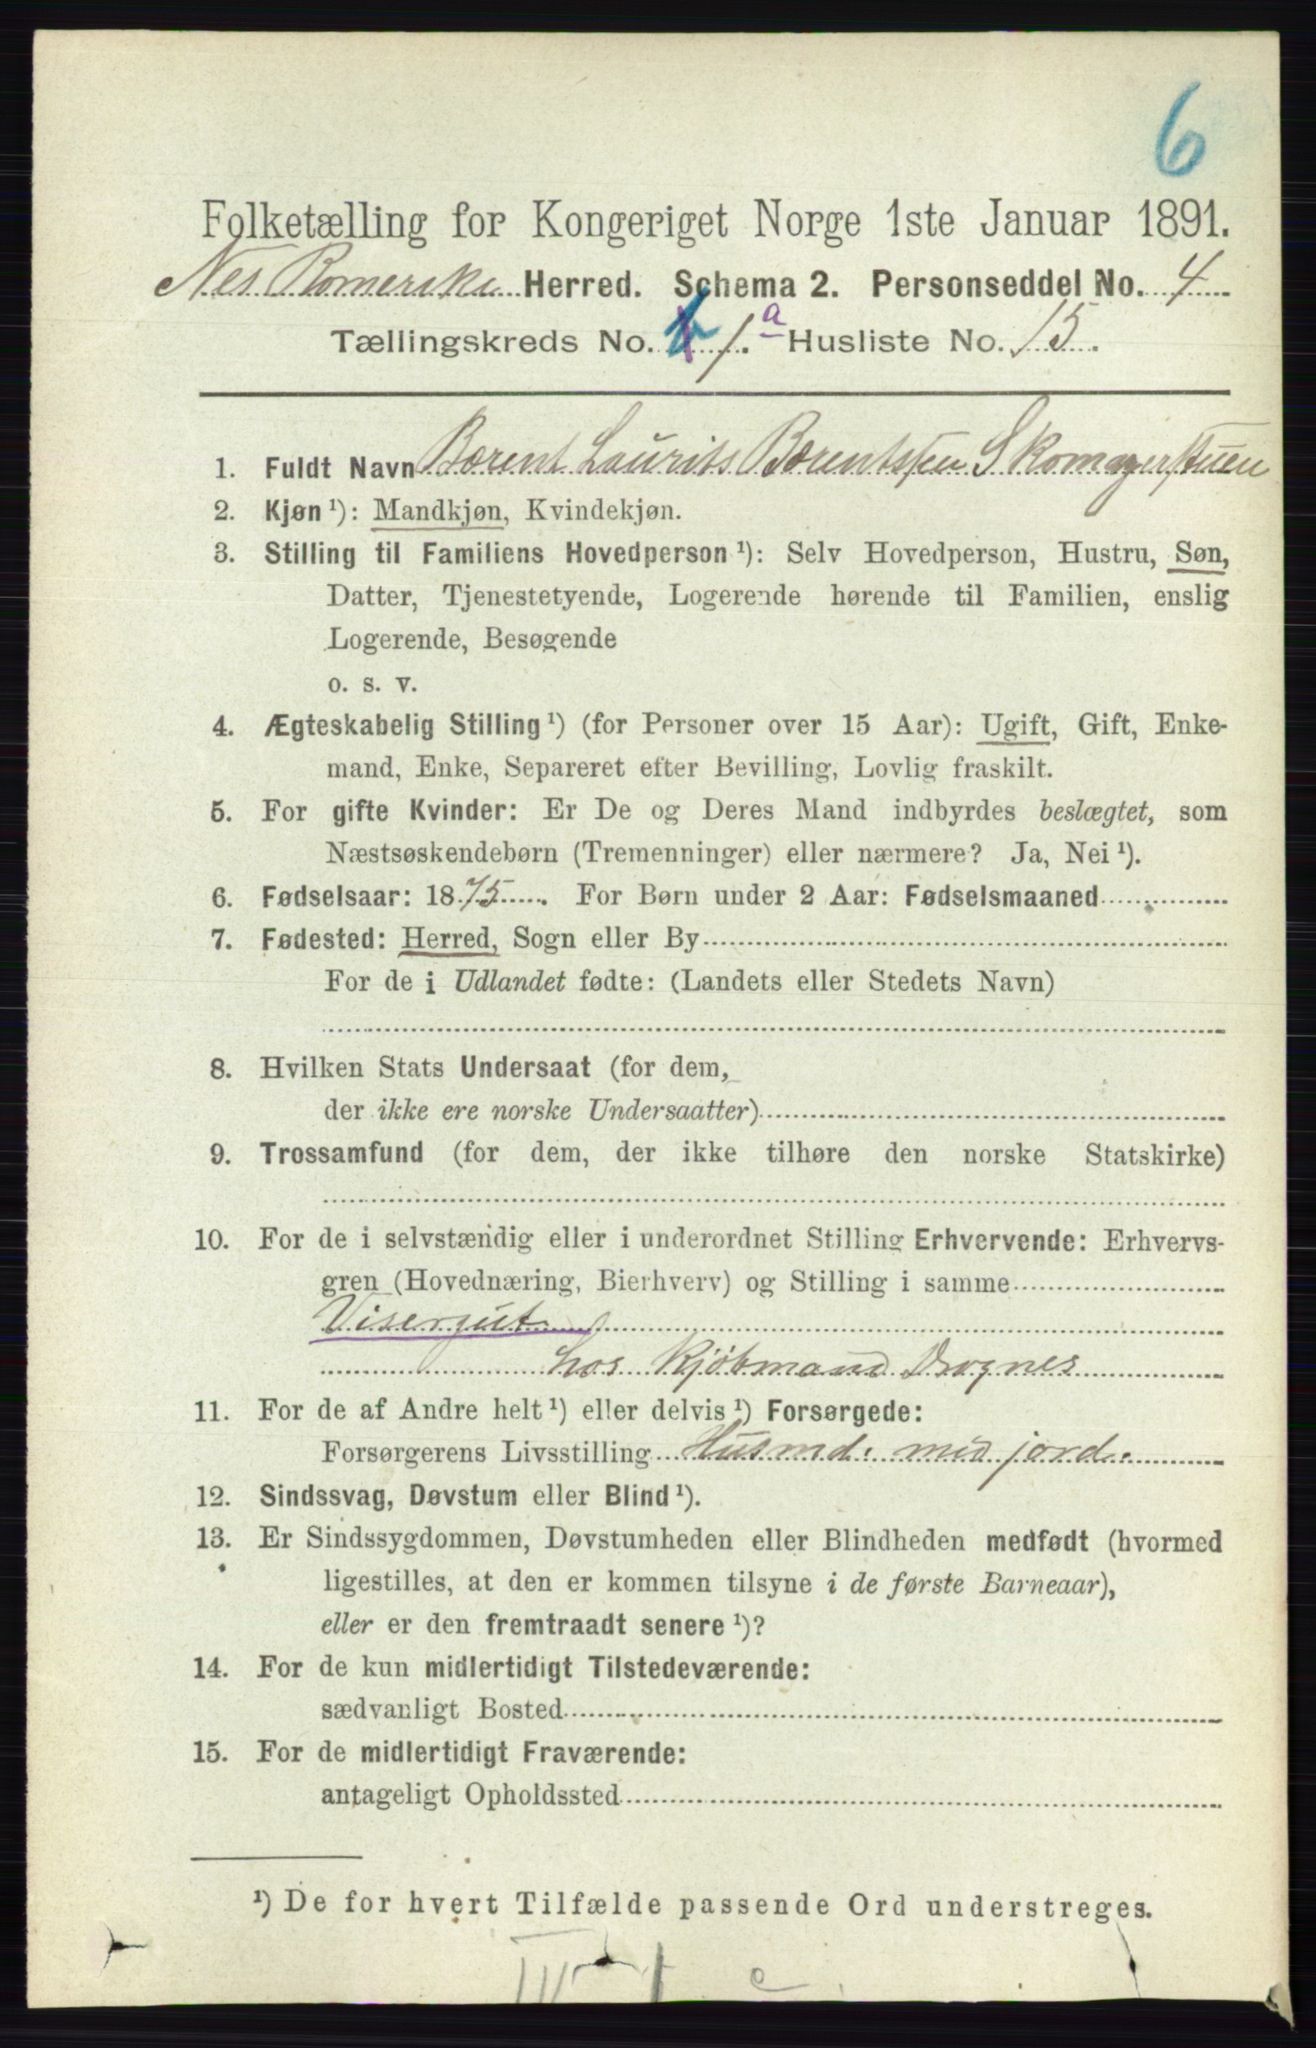 6
Folketælling for Kongeriget Norge 1ste Januar 1891.
Nes Romerike Herred. Schema 2. Personseddel No. 4
Tællingskreds No. 1.a Husliste No. 15.
1. Fuldt Navn Berent Laurits Berentsen Skomagerstuen
2. Kjøn ¹): Mandkjøn, Kvindekjøn.
3. Stilling til Familiens Hovedperson ¹): Selv Hovedperson, Hustru, Søn,
Datter, Tjenestetyende, Logerende hørende til Familien, enslig
Logerende, Besøgende
o. s. v.
4. Ægteskabelig Stilling ¹) (for Personer over 15 Aar): Ugift, Gift, Enke-
mand, Enke, Separeret efter Bevilling, Lovlig fraskilt.
5. For gifte Kvinder: Er De og Deres Mand indbyrdes beslægtet, som
Næstsøskendebørn (Tremenninger) eller nærmere? Ja, Nei ¹).
6. Fødselsaar: 1875. For Børn under 2 Aar: Fødselsmaaned
7. Fødested: Herred, Sogn eller By
For de i Udlandet fødte: (Landets eller Stedets Navn)
8. Hvilken Stats Undersaat (for dem,
der ikke ere norske Undersaatter)
9. Trossamfund (for dem, der ikke tilhøre den norske Statskirke)
10. For de i selvstændig eller i underordnet Stilling Erhvervende: Erhvervs-
gren (Hovednæring, Bierhverv) og Stilling i samme
Visergut
hos Kjøbmand Drognes
11. For de af Andre helt ¹) eller delvis ¹) Forsørgede:
Forsørgerens Livsstilling Husmd. med jord.
12. Sindssvag, Døvstum eller Blind ¹).
13. Er Sindssygdommen, Døvstumheden eller Blindheden medfødt (hvormed
ligestilles, at den er kommen tilsyne i de første Barneaar),
eller er den fremtraadt senere ¹)?
14. For de kun midlertidigt Tilstedeværende:
sædvanligt Bosted
15. For de midlertidigt Fraværende:
antageligt Opholdssted
¹) De for hvert Tilfælde passende Ord understreges.